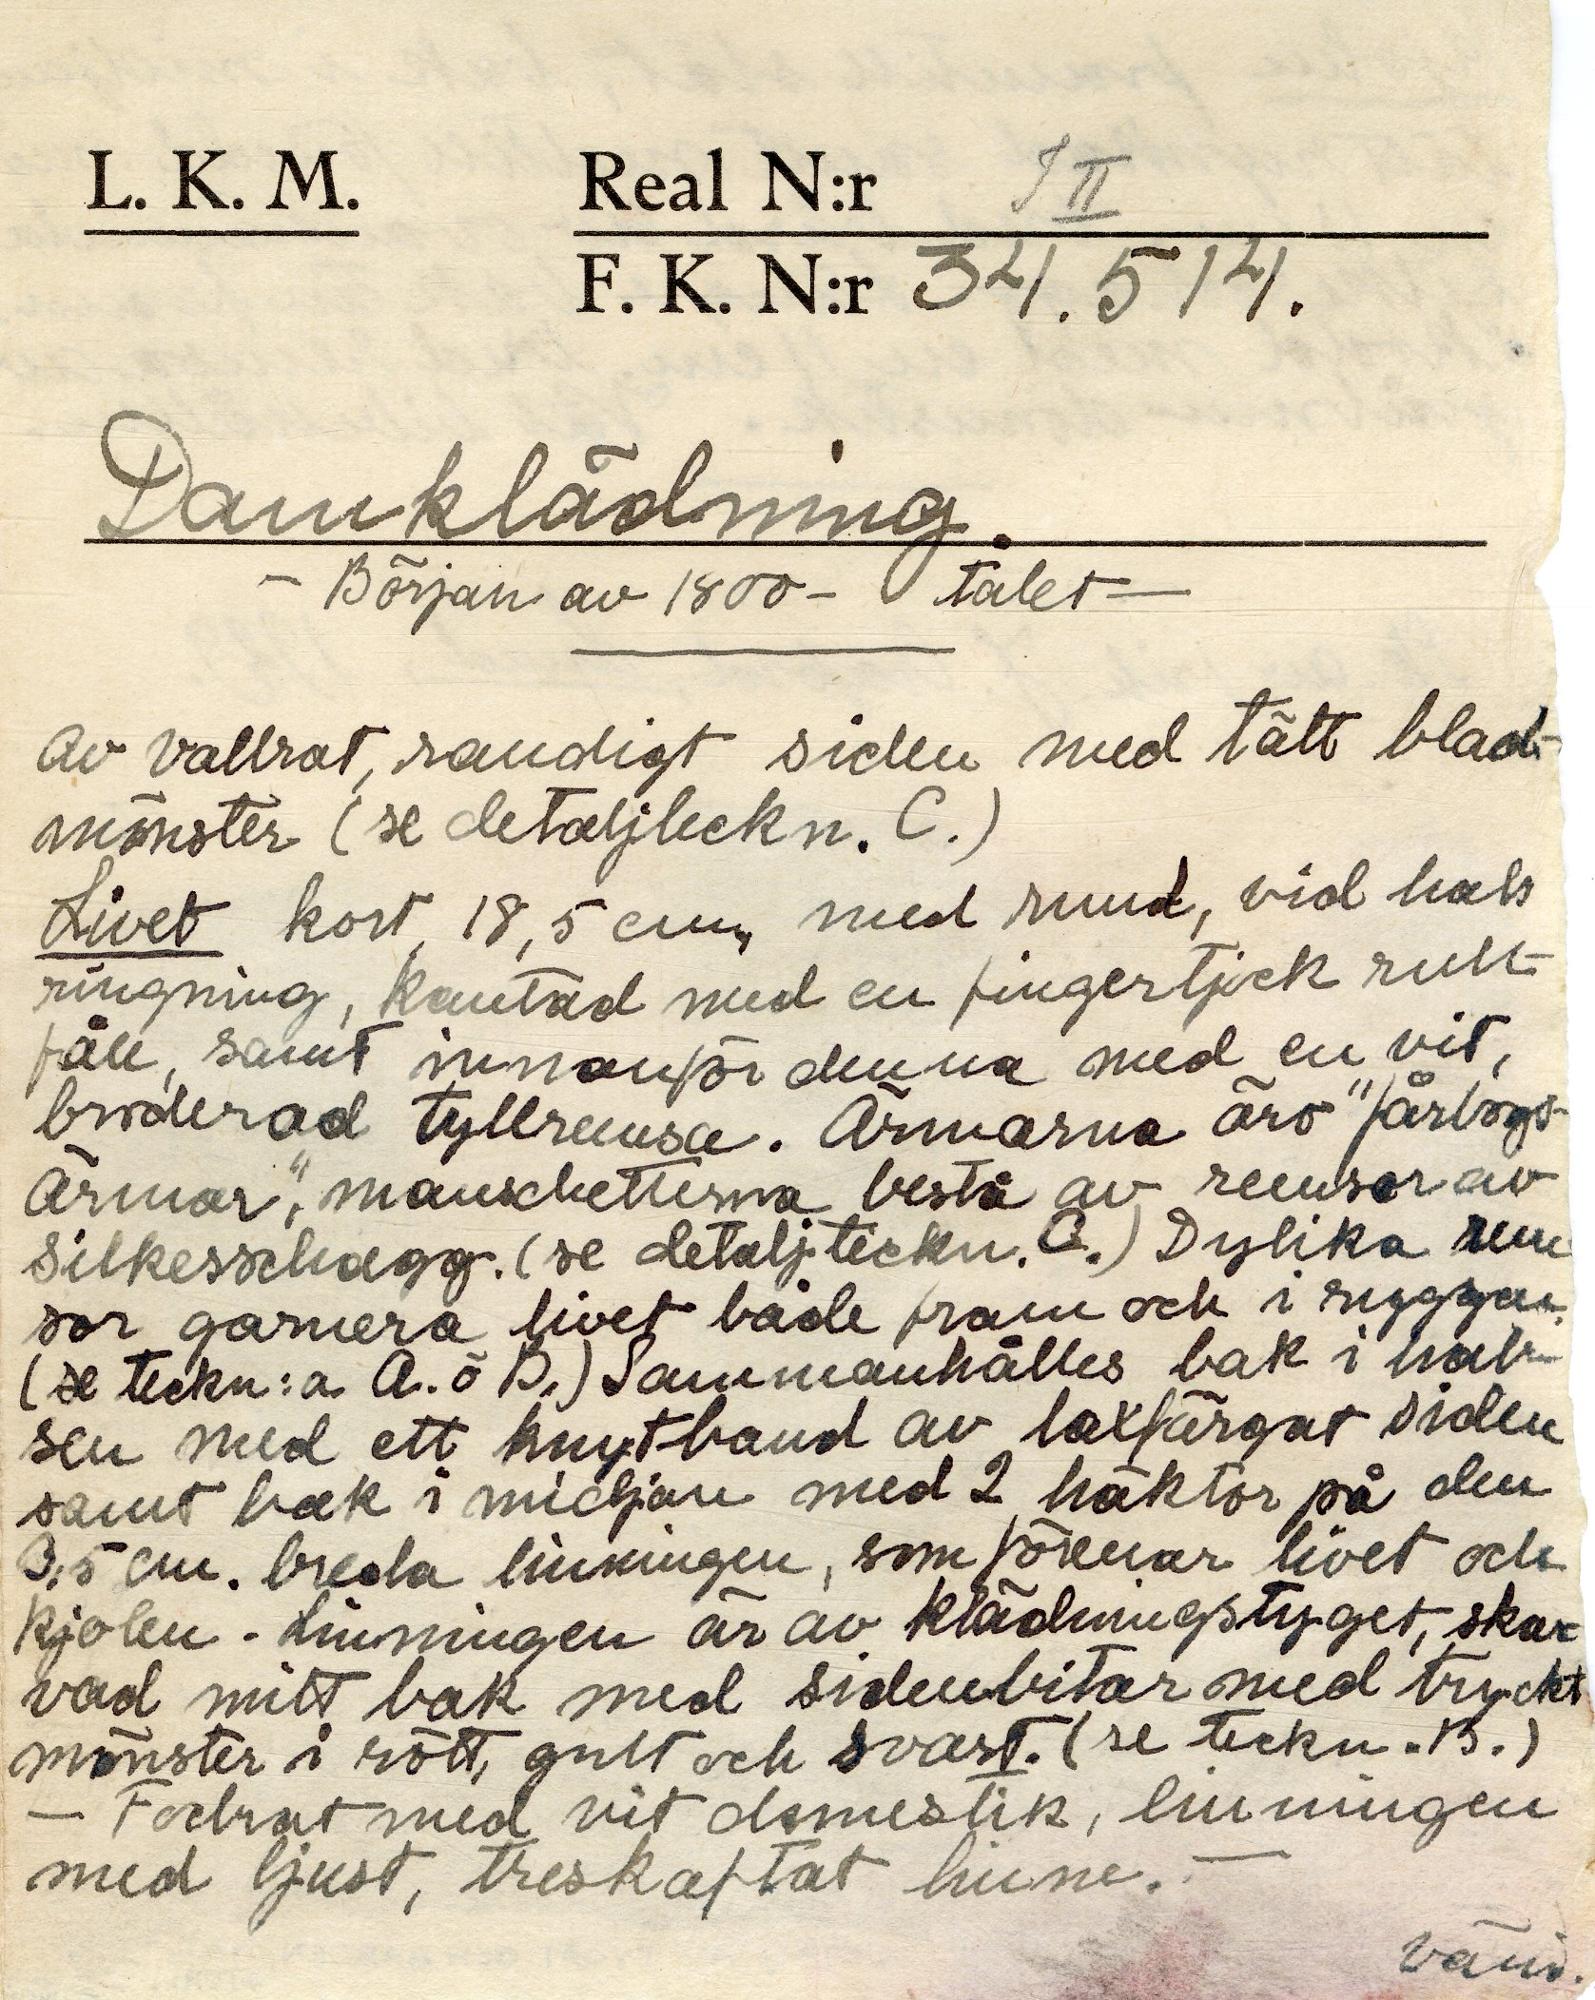 L. K. M. Real N:r I II
F. K. N:r 34.514.
Damklädning.
- Början av 1800- talet -
Av vallrat, randigt siden med tätt blad-
mönster (se detaljteckn. C.)
Livet kort, 18,5 cm, med rund, vid hals
ringning, kantad med en fingertjock rull-
fåll, samt innanför denna med en vit,
broderad tyllremsa. Ärmarna äro "fårbogs-
ärmar", manschetterna bestå av remsor av
silkesschagg. (se detaljteckn. C.) Dylika rem
sor garnera livet både fram och i ryggen.
(se teckn:a A. o B.) Sammanhålles bak i hal-
sen med ett knytband av laxfärgat siden
samt bak i midjan med 2 häktor på den
3,5 cm. breda linningen, som förenar livet och
kjolen. Linningen är av klädningstyget, skar-
vad mitt bak med sidenbitar med tryckt
mönster i rött, gult och svart. (se teckn. B.)
- Fodrat med vit domestik, linningen
med ljust, treskaftat linne. -
vänd.